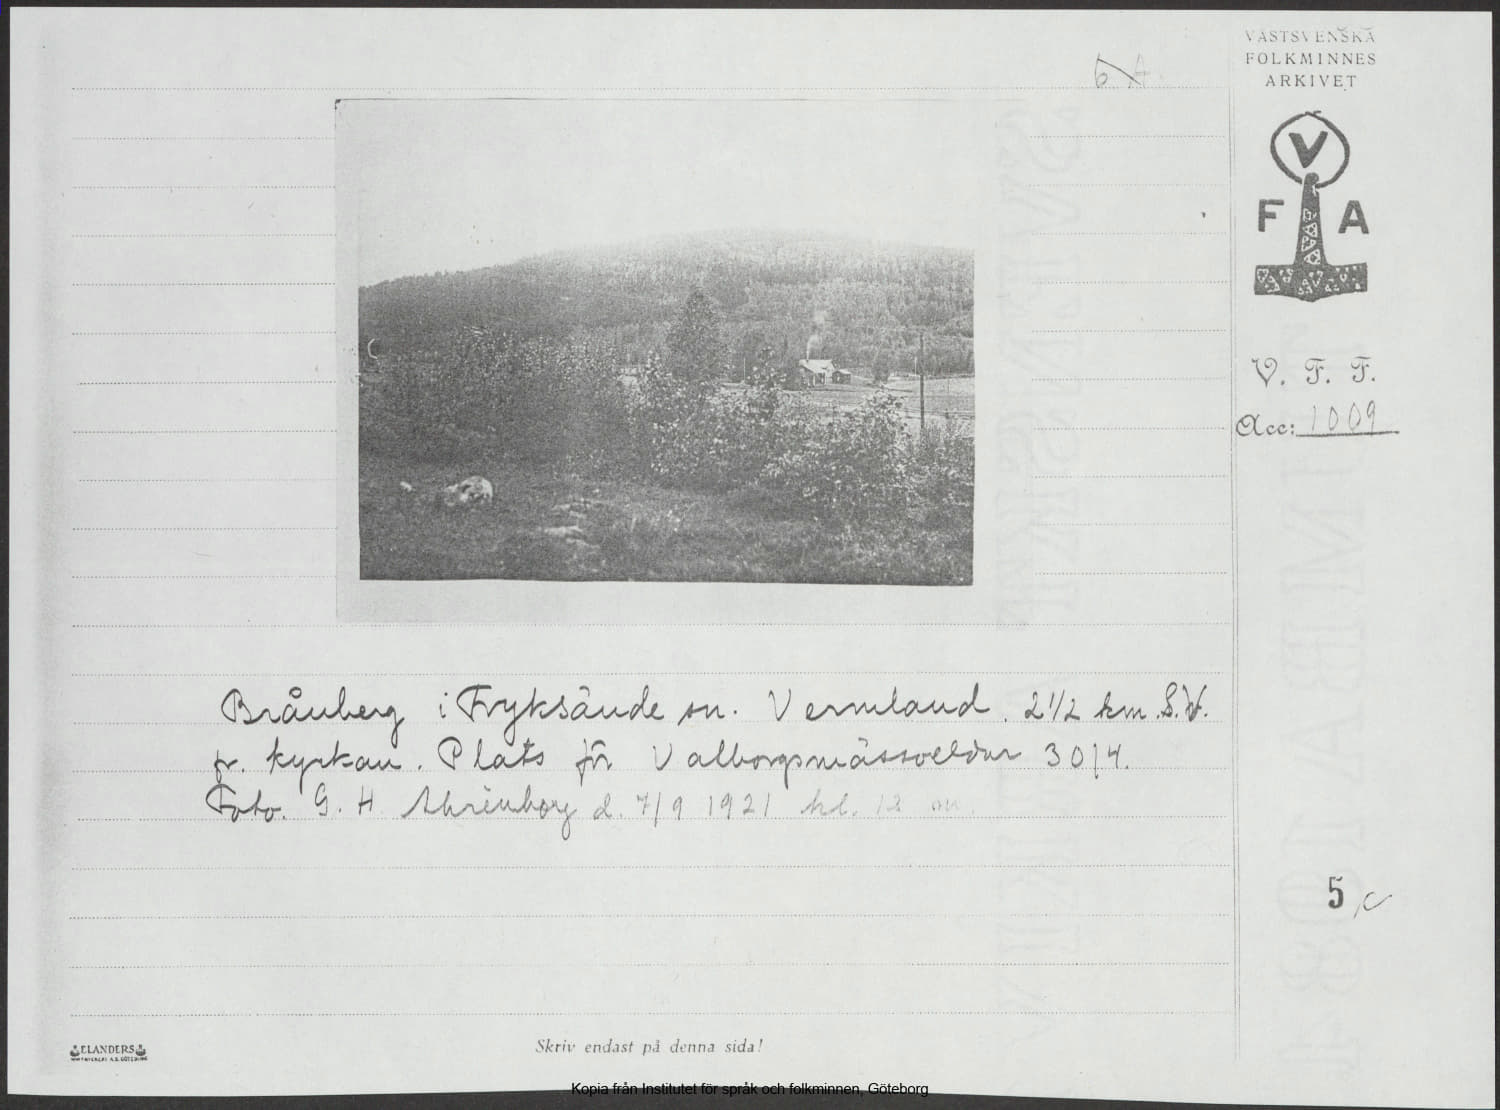 VÄSTSVENSKA
FOLKMINNES
ARKIVET
V
F A
V. F. F.
Acc: 1009
Bråuberg i Fryksände sn. Vermland. 2 1/2 km. S.V.
fr. kyrkan. Plats för Valborgsmässoeldar 30/4.
Foto. G. H. d. 7/9 1921 kl. 12 m
5
ELANDERS
Skriv endast på denna sida!
Kopia från Institutet för språk och folkminnen, Göteborg